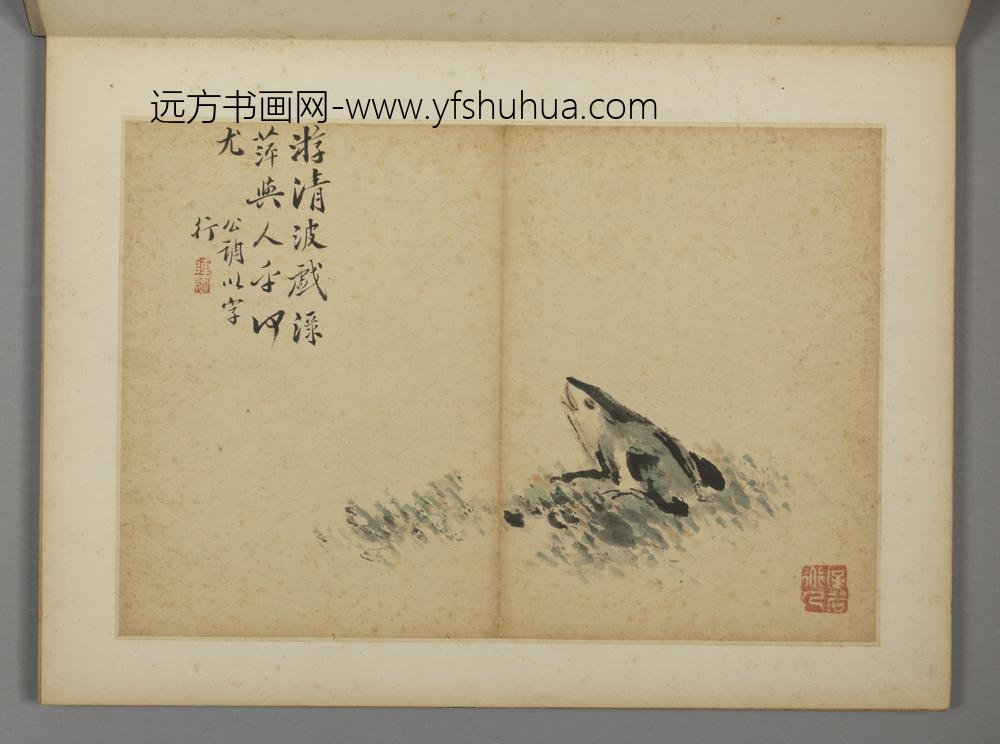 远方书画网-www.yfshuhua.com
游清波戲深
萍與人乎何
尤
公調以字
行